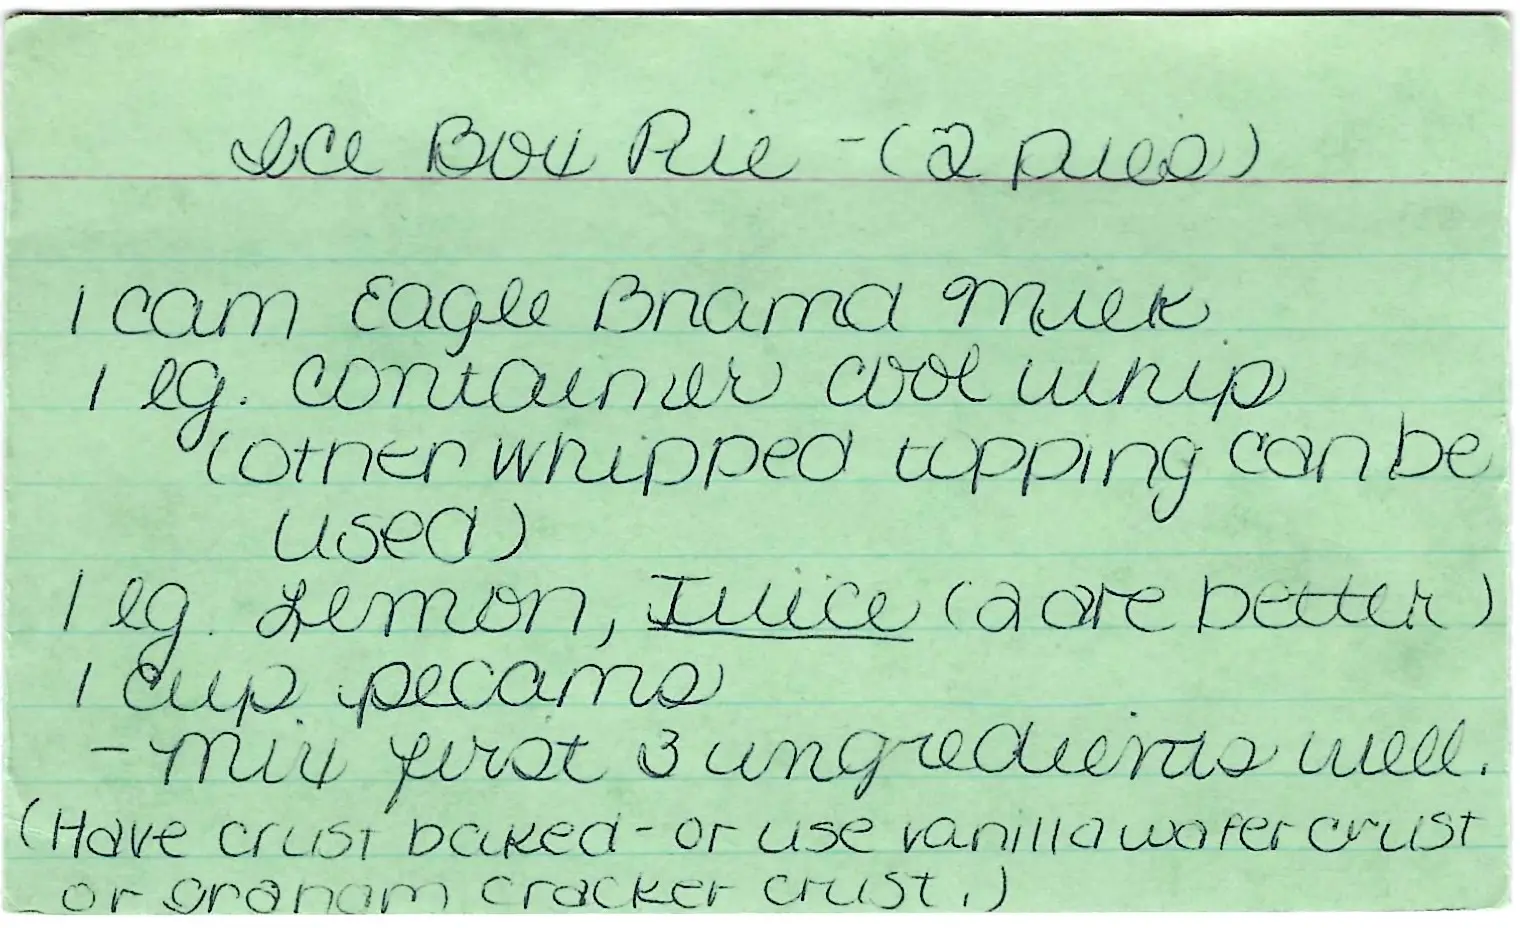 Ice Box Pie - (2 pies)
1 can Eagle Brand Milk
1 lg. container cool whip
(other whipped topping can be
used)
1 lg. Lemon, Juice (2 are better)
1 cup pecans
- Mix first 3 ingredients well.
(Have crust baked - or use vanilla wafer crust
or graham cracker crust.)